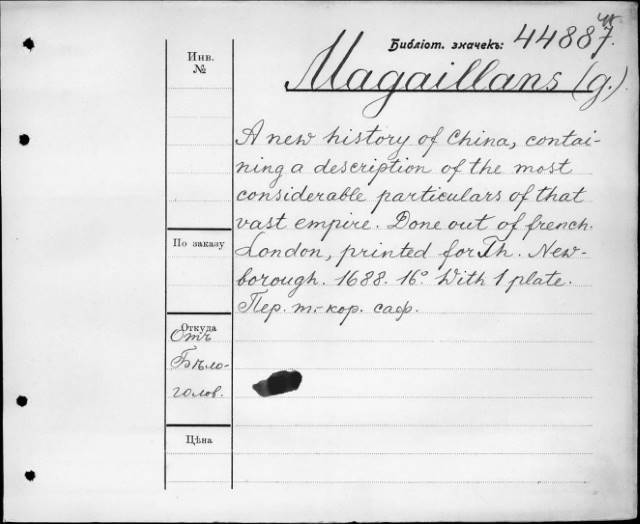 Библіот. значекъ: 44887.
Инв.
№
Magaillans (G.)
A new history of China, contai-
ning a description of the most
considerable particulars of that
vast empire. Done out of french.
London, printed for Th. New-
borough. 1688. 16°. With 1 plate.
Пер. т.-кор. саф.
По заказу
Откуда
Отъ
Бѣло-
голов.
Цѣна